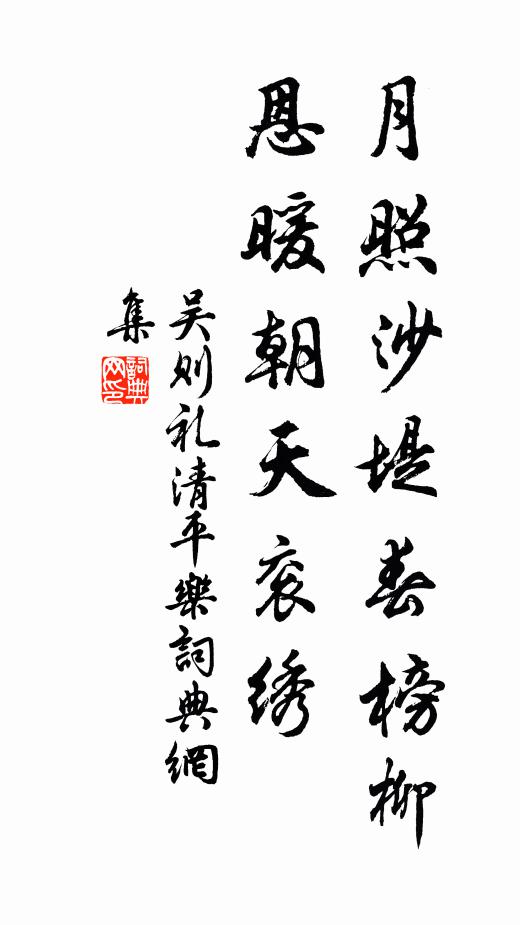 月照沙堤春榜柳
恩暖朝天衮绣
吴则礼清平樂詞典網
集
詞典网印